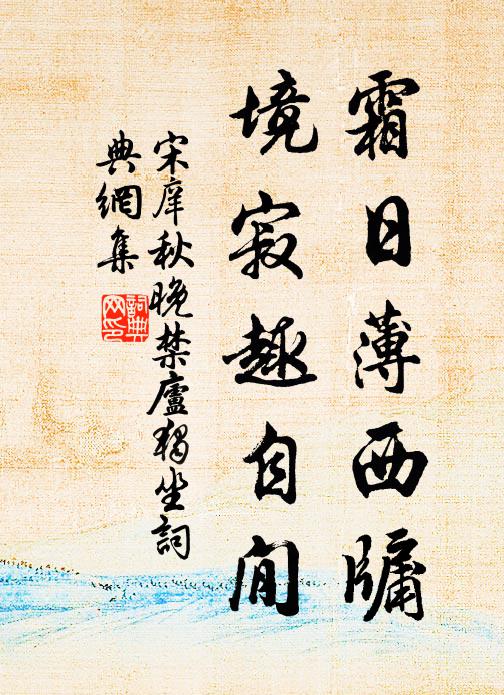 霜日薄西牖
境寂趣自闲
宋庠秋晚禁廬獨坐詞
典網集
詞典
网印